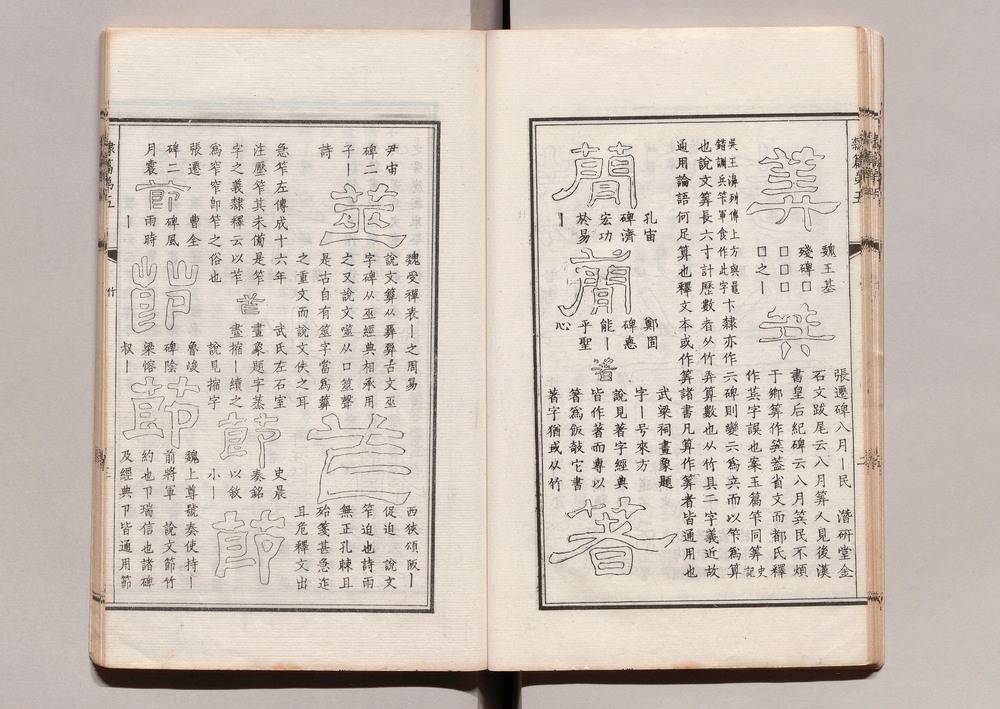 隸篇第五
筭
魏王基
殘碑□
□□□
□之丨
筭
張遷碑八月丨民 潛研堂金
石文跋尾云八月筭人見後漢
書皇后紀碑云八月筭民不煩
于鄉筭作筭葢省文而都氏釋
作筭字誤也案玉篇竿同筭史記
吳王濞列傳上方與鼂
錯調兵竿軍食作此字
卞隸亦作
二碑則變
為
而以竿為筭
也說文筭長六寸計歷數者从竹弄算數也从竹具二字義近故
通用論語何足算也釋文本或作筭諸書凡算作筭者皆通用也
簡
孔宙
碑濟
宏功
於易
丨
簡
鄭固
碑悳
能丨
乎聖
心
箸
武梁祠畫象題
字丨号來方
說見著字經典
皆作著而專以
箸為飯攲它書
著字猶或从竹
箸
筮
魏受禪表丨之周易
說文筭从
古文巫
字碑从巫經典相承用
之又說文噬从口筮聲
是古自有筮字當為筭
之重文而說文佚之耳
尹宙
碑二
子丨
詩
笮
西狹頌阪丨
促迫 說文
笮迫也詩雨
無正孔棘且
殆箋甚急迮
且危釋文出
急笮左傳成十六年
注壓笮其未備是笮
字之義隸釋云以苲
為窄窄卽笮之俗也
武氏左石室
畫象題字蒸
盡搚丨續之
說見搚字
節
史晨
奏銘
以敘
小丨
節
張遷
碑二
月震
節
曹全
碑風
雨時
丨
節
魯峻
碑陰
梁熔
叔丨
節
魏上尊號奏使持丨
前將軍 說文節竹
約也卩瑞信也諸碑
及經典卩皆通用節
隸篇第五
竹